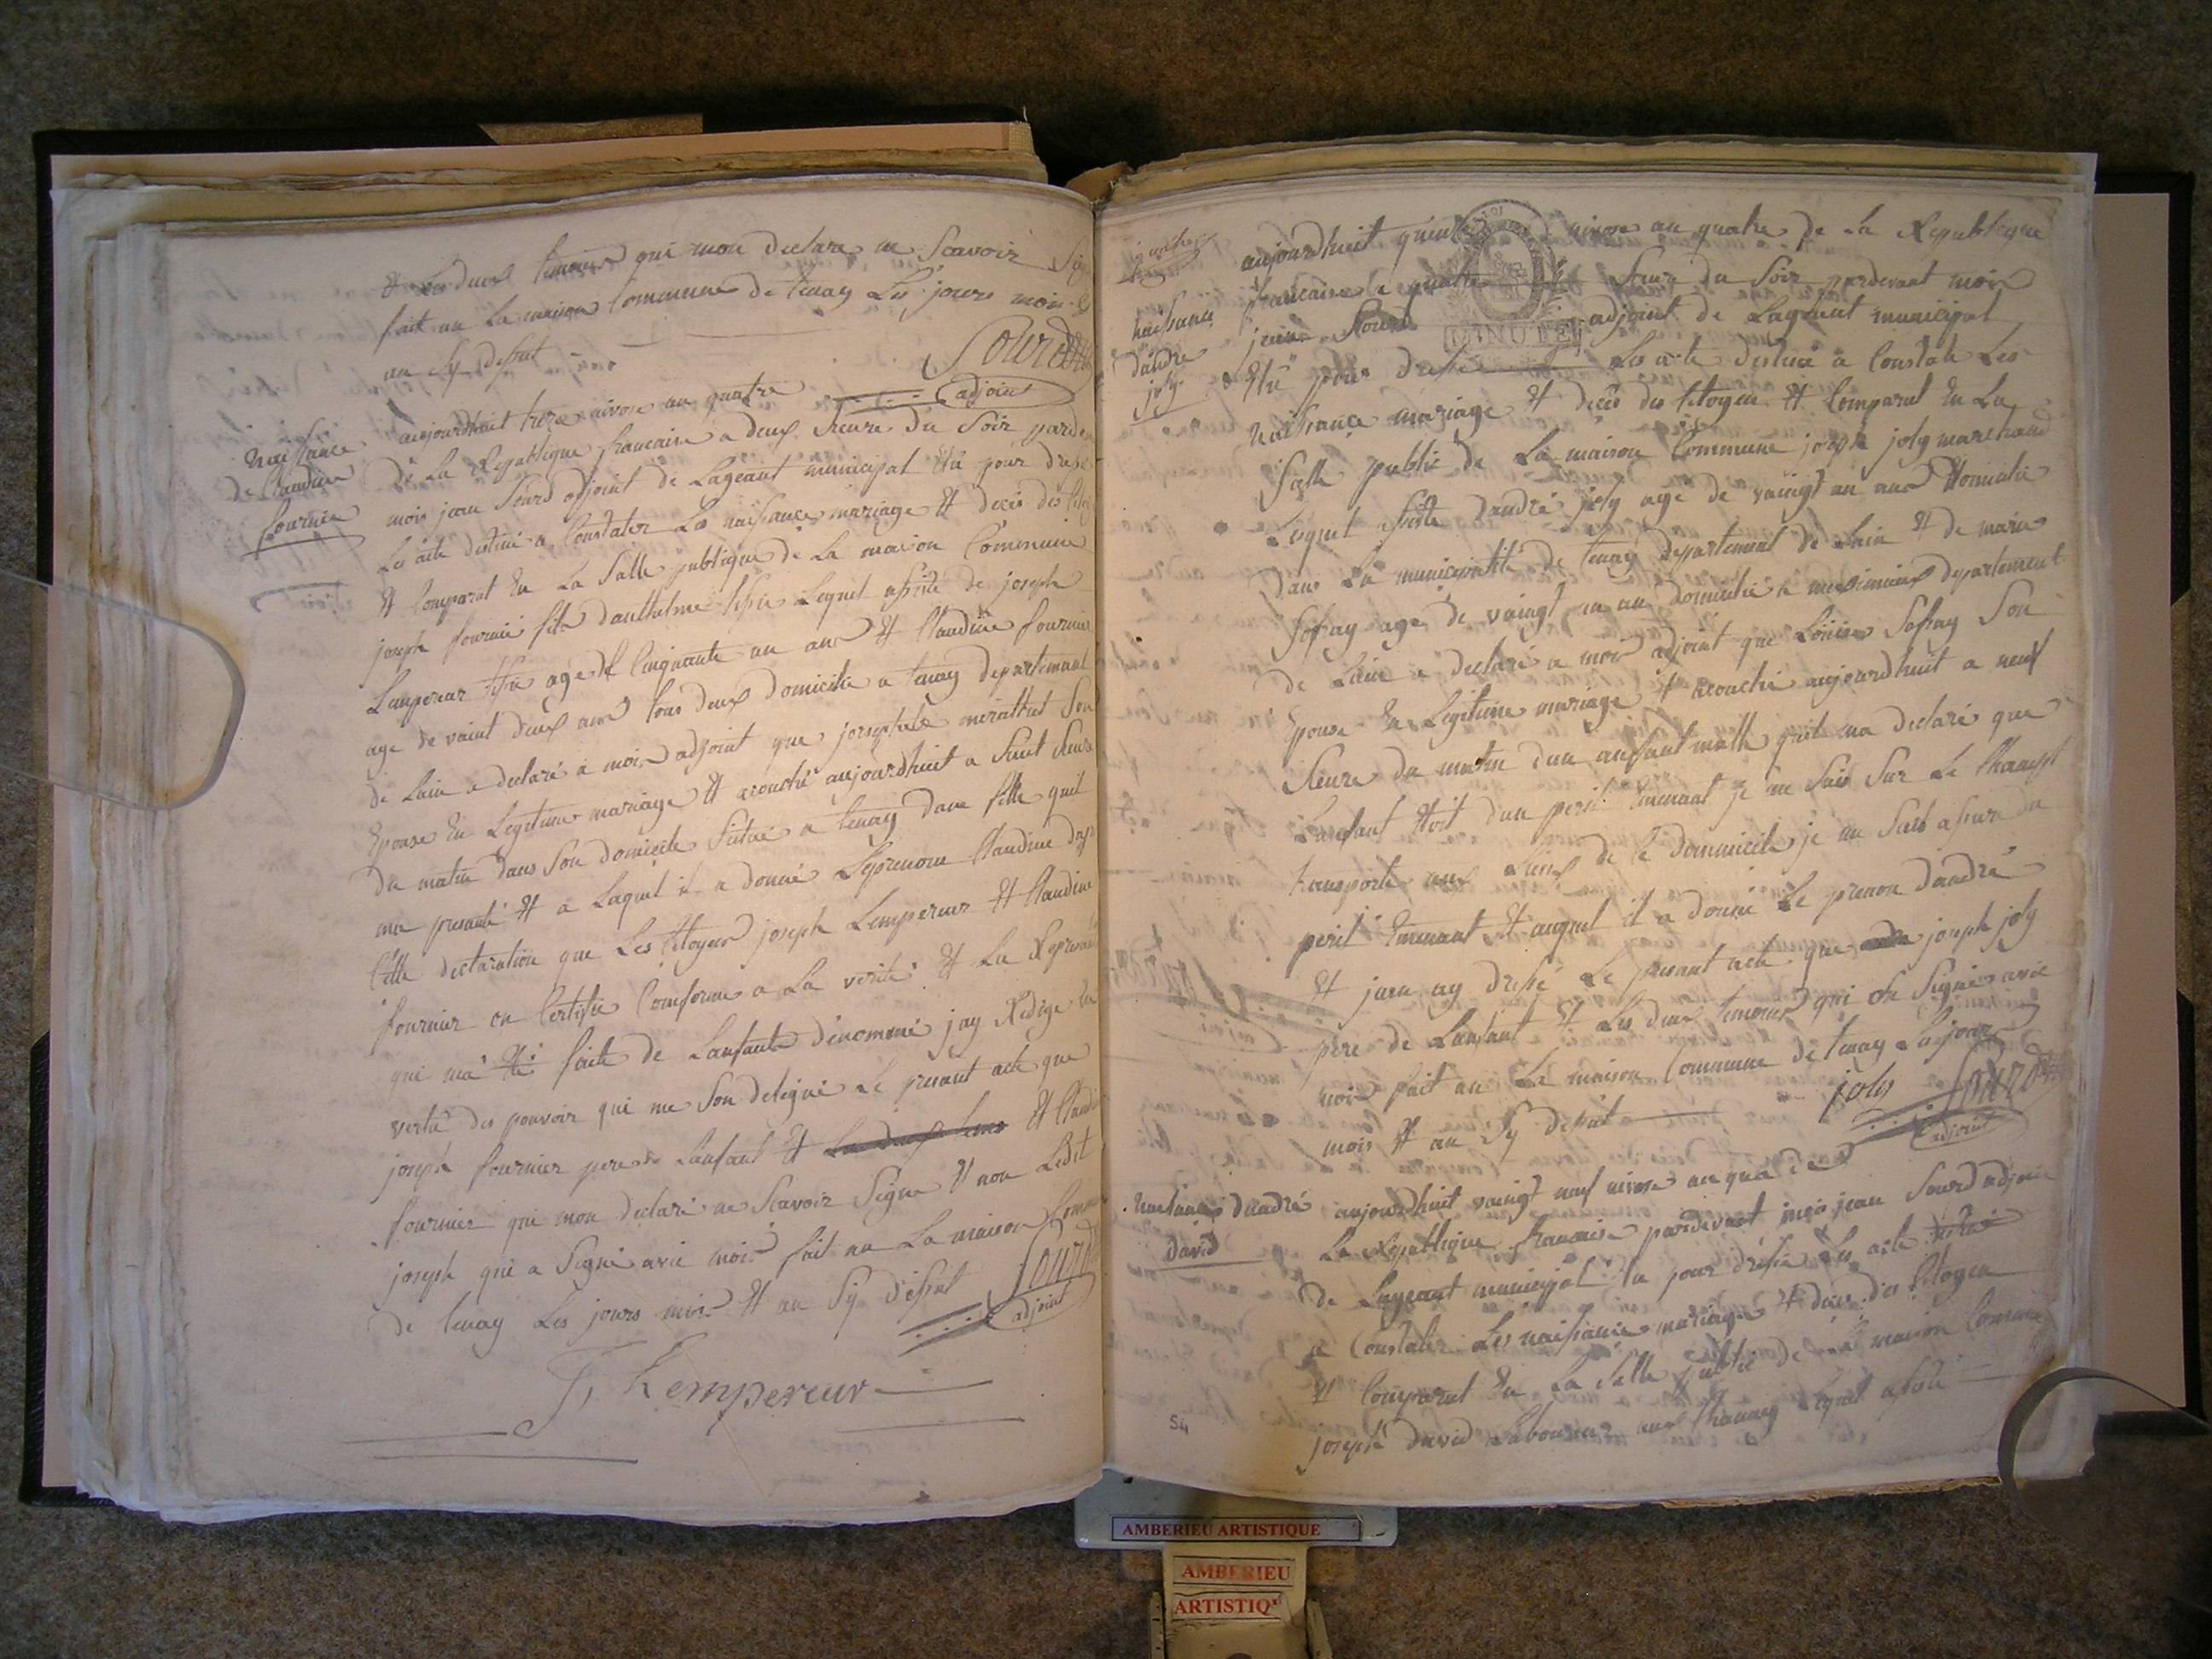 et Les deux temoins qui mon declare ne Scavoir Sig
fait en La maison Commune de tenay Les jours mois et
an Sy desut
Sourd
adjoint
Naissance
de Claudine
fournier
aujourdhuit treze nivose an quatre
de La Republique francaise a deux heure du Soir parde
mois jean Sourd adjoint de Lageant municipal Elu pour dresé
Les acte destiné a Constater Les naissance mariage et decés des Citoy
et Comparut En La Salle publique de La maison Commune
joseph fournié fils danthelme tissié Lequel assisté de joseph
Lampereur tissié agé de Cinquante un ans et Claudine fournier
age de vaint deux ans tous deux domicilié a tenay departemant
de Lain a declaré a mois adjoint que Son
Epouse En Legitime mariage et acouché aujourdhuit a huit heure
du matin dans Son domicile Situé a tenay dune fille quil
ma presanté et a Laquel il a donné Leprenom Claudine daps
Cette declaration que Les Citoyens joseph Lempereur et Claudine
fournier on Certifié Comforme a La verité et La Represan
qui ma été faite de Lanfant denommé jay Redigé En
vertu des pouvoir qui me Son delegué Le presant acte que
joseph fournier pere de Lanfant et Les deux temo et Claudi
fournier qui mon declaré ne Scavoir Signe et non Ledit
joseph qui a Signé avec mois fait en La maison Commu
de tenay Les jours mois et an Sy desut
Sourd
adjoint
J, Lempereur
naissance
dandre
joly
aujourdhuit quinze nivose an quatre de La Republique
francaise a quatre heure du Soir pardevant mois
jean Sourd adjoint de Lageant municipal
Elu pour dresé Les acte destiné a Constate Les
Naissance mariage et decés des Citoyen et Comparut En La
Salle public de La maison Commune joseph joly marchand
Lequel assisté dandré joly agé de vaingt un ans domicilié
dans La municipalité de tenay departement de Lain et de marie
Sofray agé de vaingt un an domicilié a meximieux departement
de Lain a declaré a mois adjoint que Louise Sofray Son
Epouse En Legitime mariage et acouché aujourdhuit a neuf
heure du matin dun anfant malle quil ma declaré que
Lanfant Etoit dun peril Emenant je me Suis Sur Le Champt
transporté aux Lieux de Le dommicile je me Suis assuré du
peril Emenant et auquel il a donné Le prenon dandré
et jaen ay dressé Le presant acte que joseph joly
pere de Lanfant et Les deux temoins qui on Signé avec
mois fait en La maison Commune de tenay Lesjour
mois et an Sy desut
joly Sourd
adjoint
Naissance dandré
david
aujourdhuit vaingt neuf nivose an quatre de
La Republique francaise pardevant mois jean Sourd adjoint
de Lageant municipal Elu pour dressé Les acte
a Constater Les naissance mariage et deces des Citoyen
et Comparut En La Salle public de La maison Commune
joseph david Laboureur aux Chanay Lequel
54
MINUTE
AMBERIEU ARTISTIQUE
AMBERIEU
ARTISTIQ